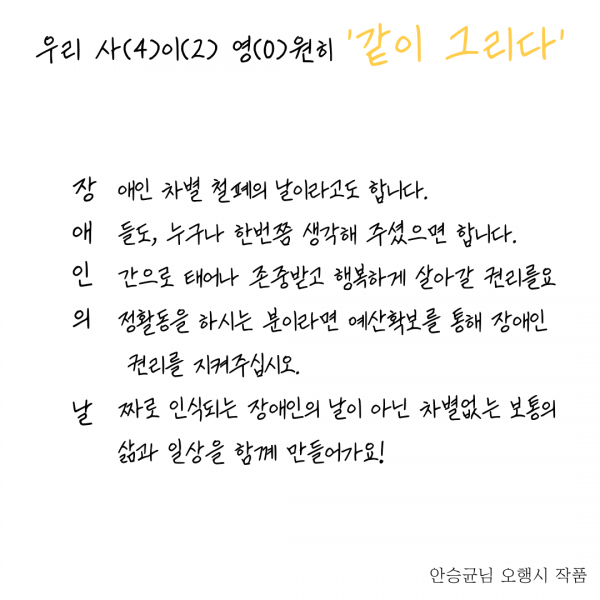 우리 사(4)이(2) 영(0)원히 '같이 그리다'
장 애인 차별 철폐의 날이라고도 합니다.
애 들도, 누구나 한번쯤 생각해 주셨으면 합니다.
인 간으로 태어나 존중받고 행복하게 살아갈 권리를요
의 정활동을 하시는 분이라면 예산확보를 통해 장애인
권리를 지켜주십시오.
날 짜로 인식되는 장애인의 날이 아닌 차별없는 보통의
삶과 일상을 함께 만들어가요!
안승균님 오행시 작품